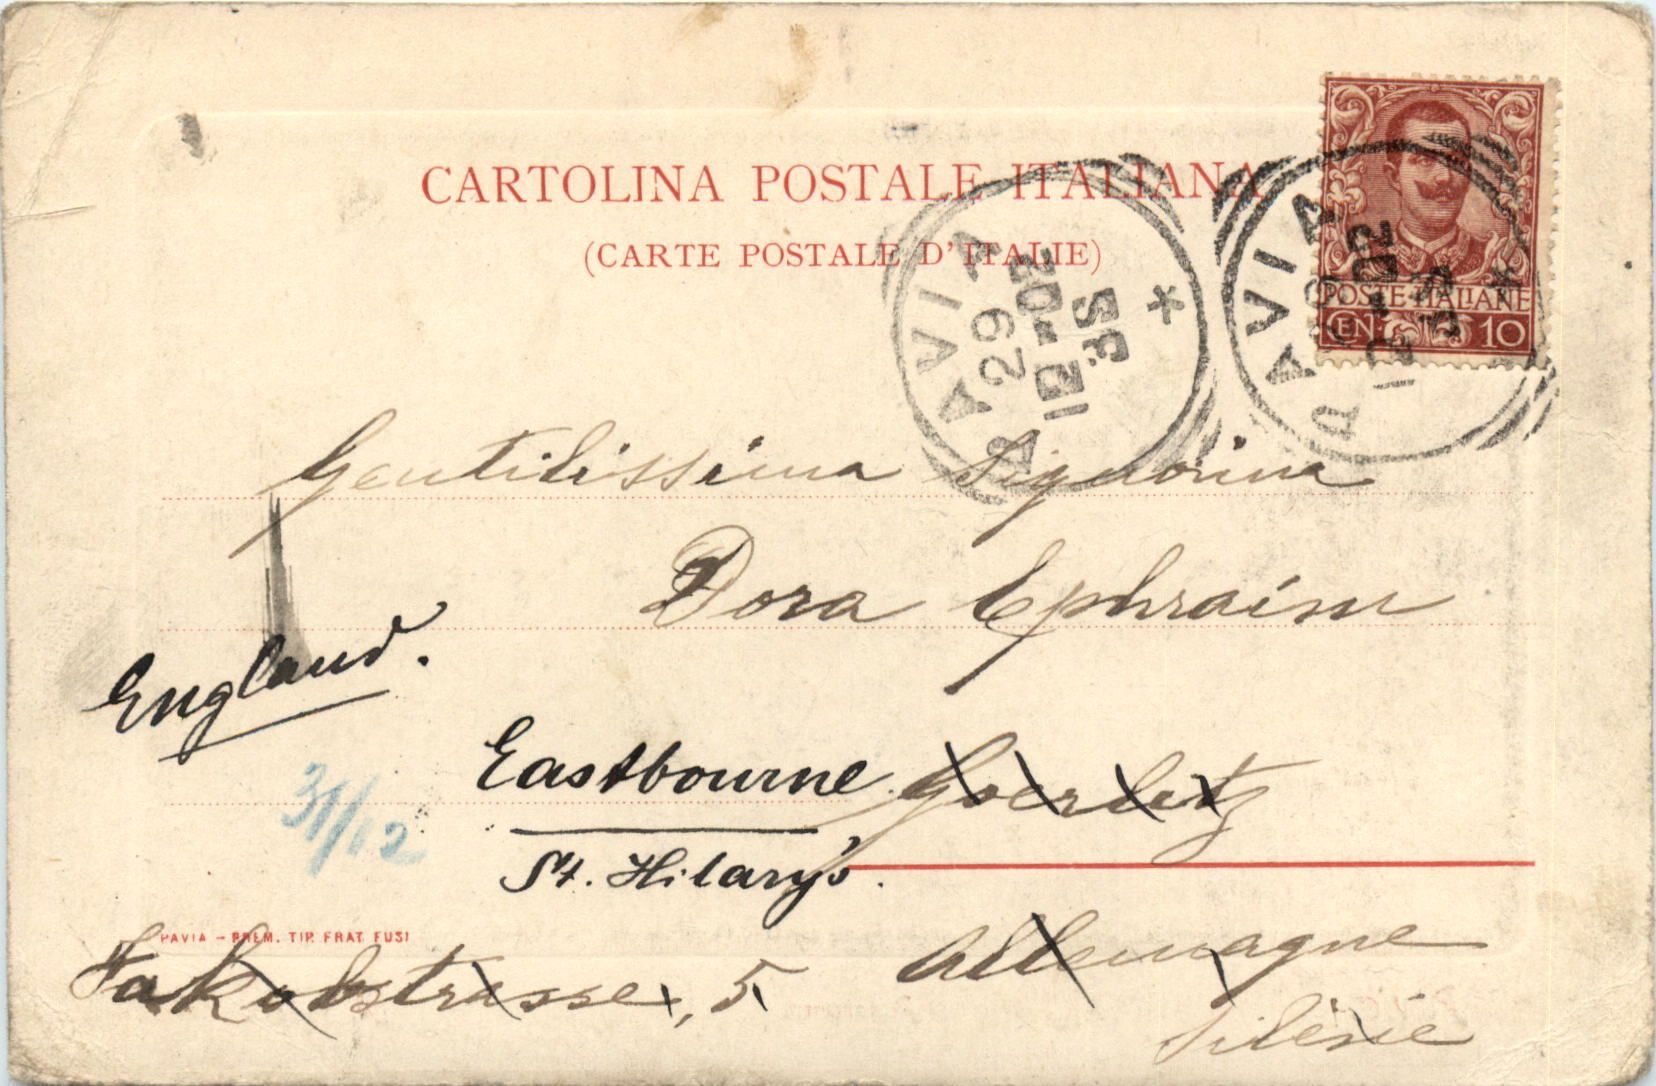 CARTOLINA POSTALE ITALIANA
(CARTE POSTALE D'ITALIE)
POSTE ITALIANE
CEN. 10
PAVIA
29
12-02
3S
PAVIA
12-02
Gentilissima Signorina
Dora Ephraim
England.
Eastbourne. Goerlitz
31/12
St. Hilary's.
PAVIA – PREM. TIP. FRAT. FUSI
Jakobstrasse, 5 Allemagne
Silésie